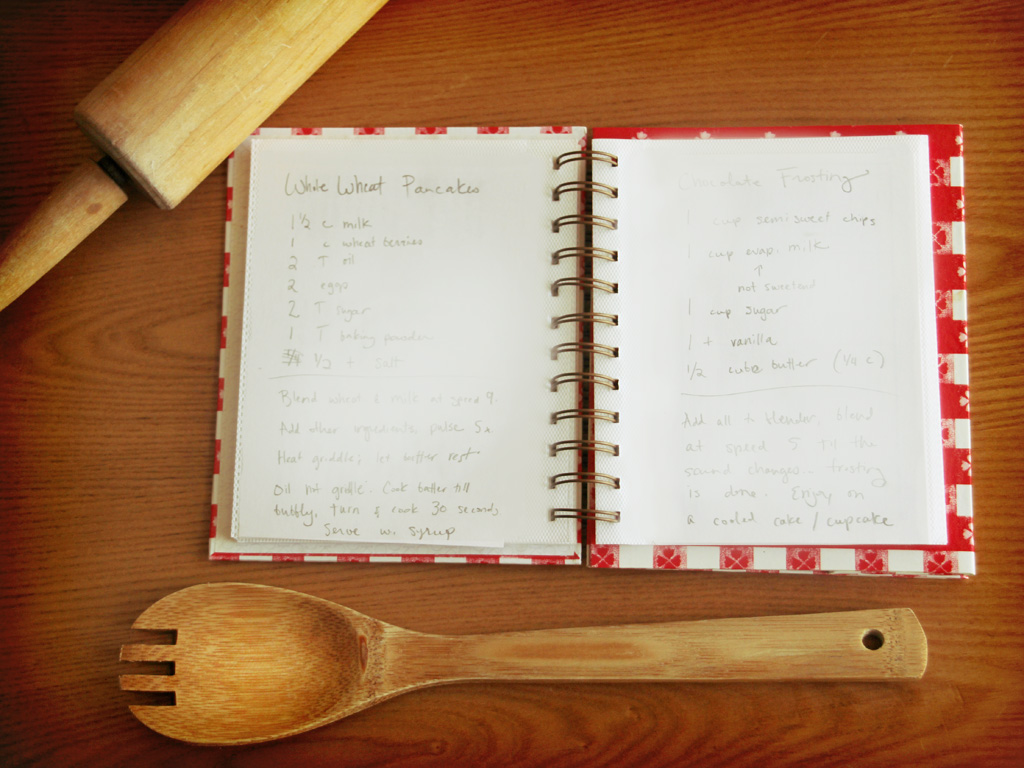 White Wheat Pancakes
1 ½ c milk
1 c wheat berries
2 T oil
2 eggs
2 T sugar
1 T baking powder
½ t salt
Blend wheat & milk at speed 9.
Add other ingredients pulse 5x
Heat griddle; let batter rest
Oil hot griddle. Cook batter till
bubbly, turn & cook 30 seconds.
Serve w. syrup
Chocolate Frosting
1 cup semi sweet chips
1 cup evap. milk
↑
not sweetened
1 cup sugar
1 t vanilla
1/2 cube butter (1/4 c)
Add all to blender, blend
at speed 5 till the
sound changes... frosting
is done. Enjoy on
a cooled cake / cupcake